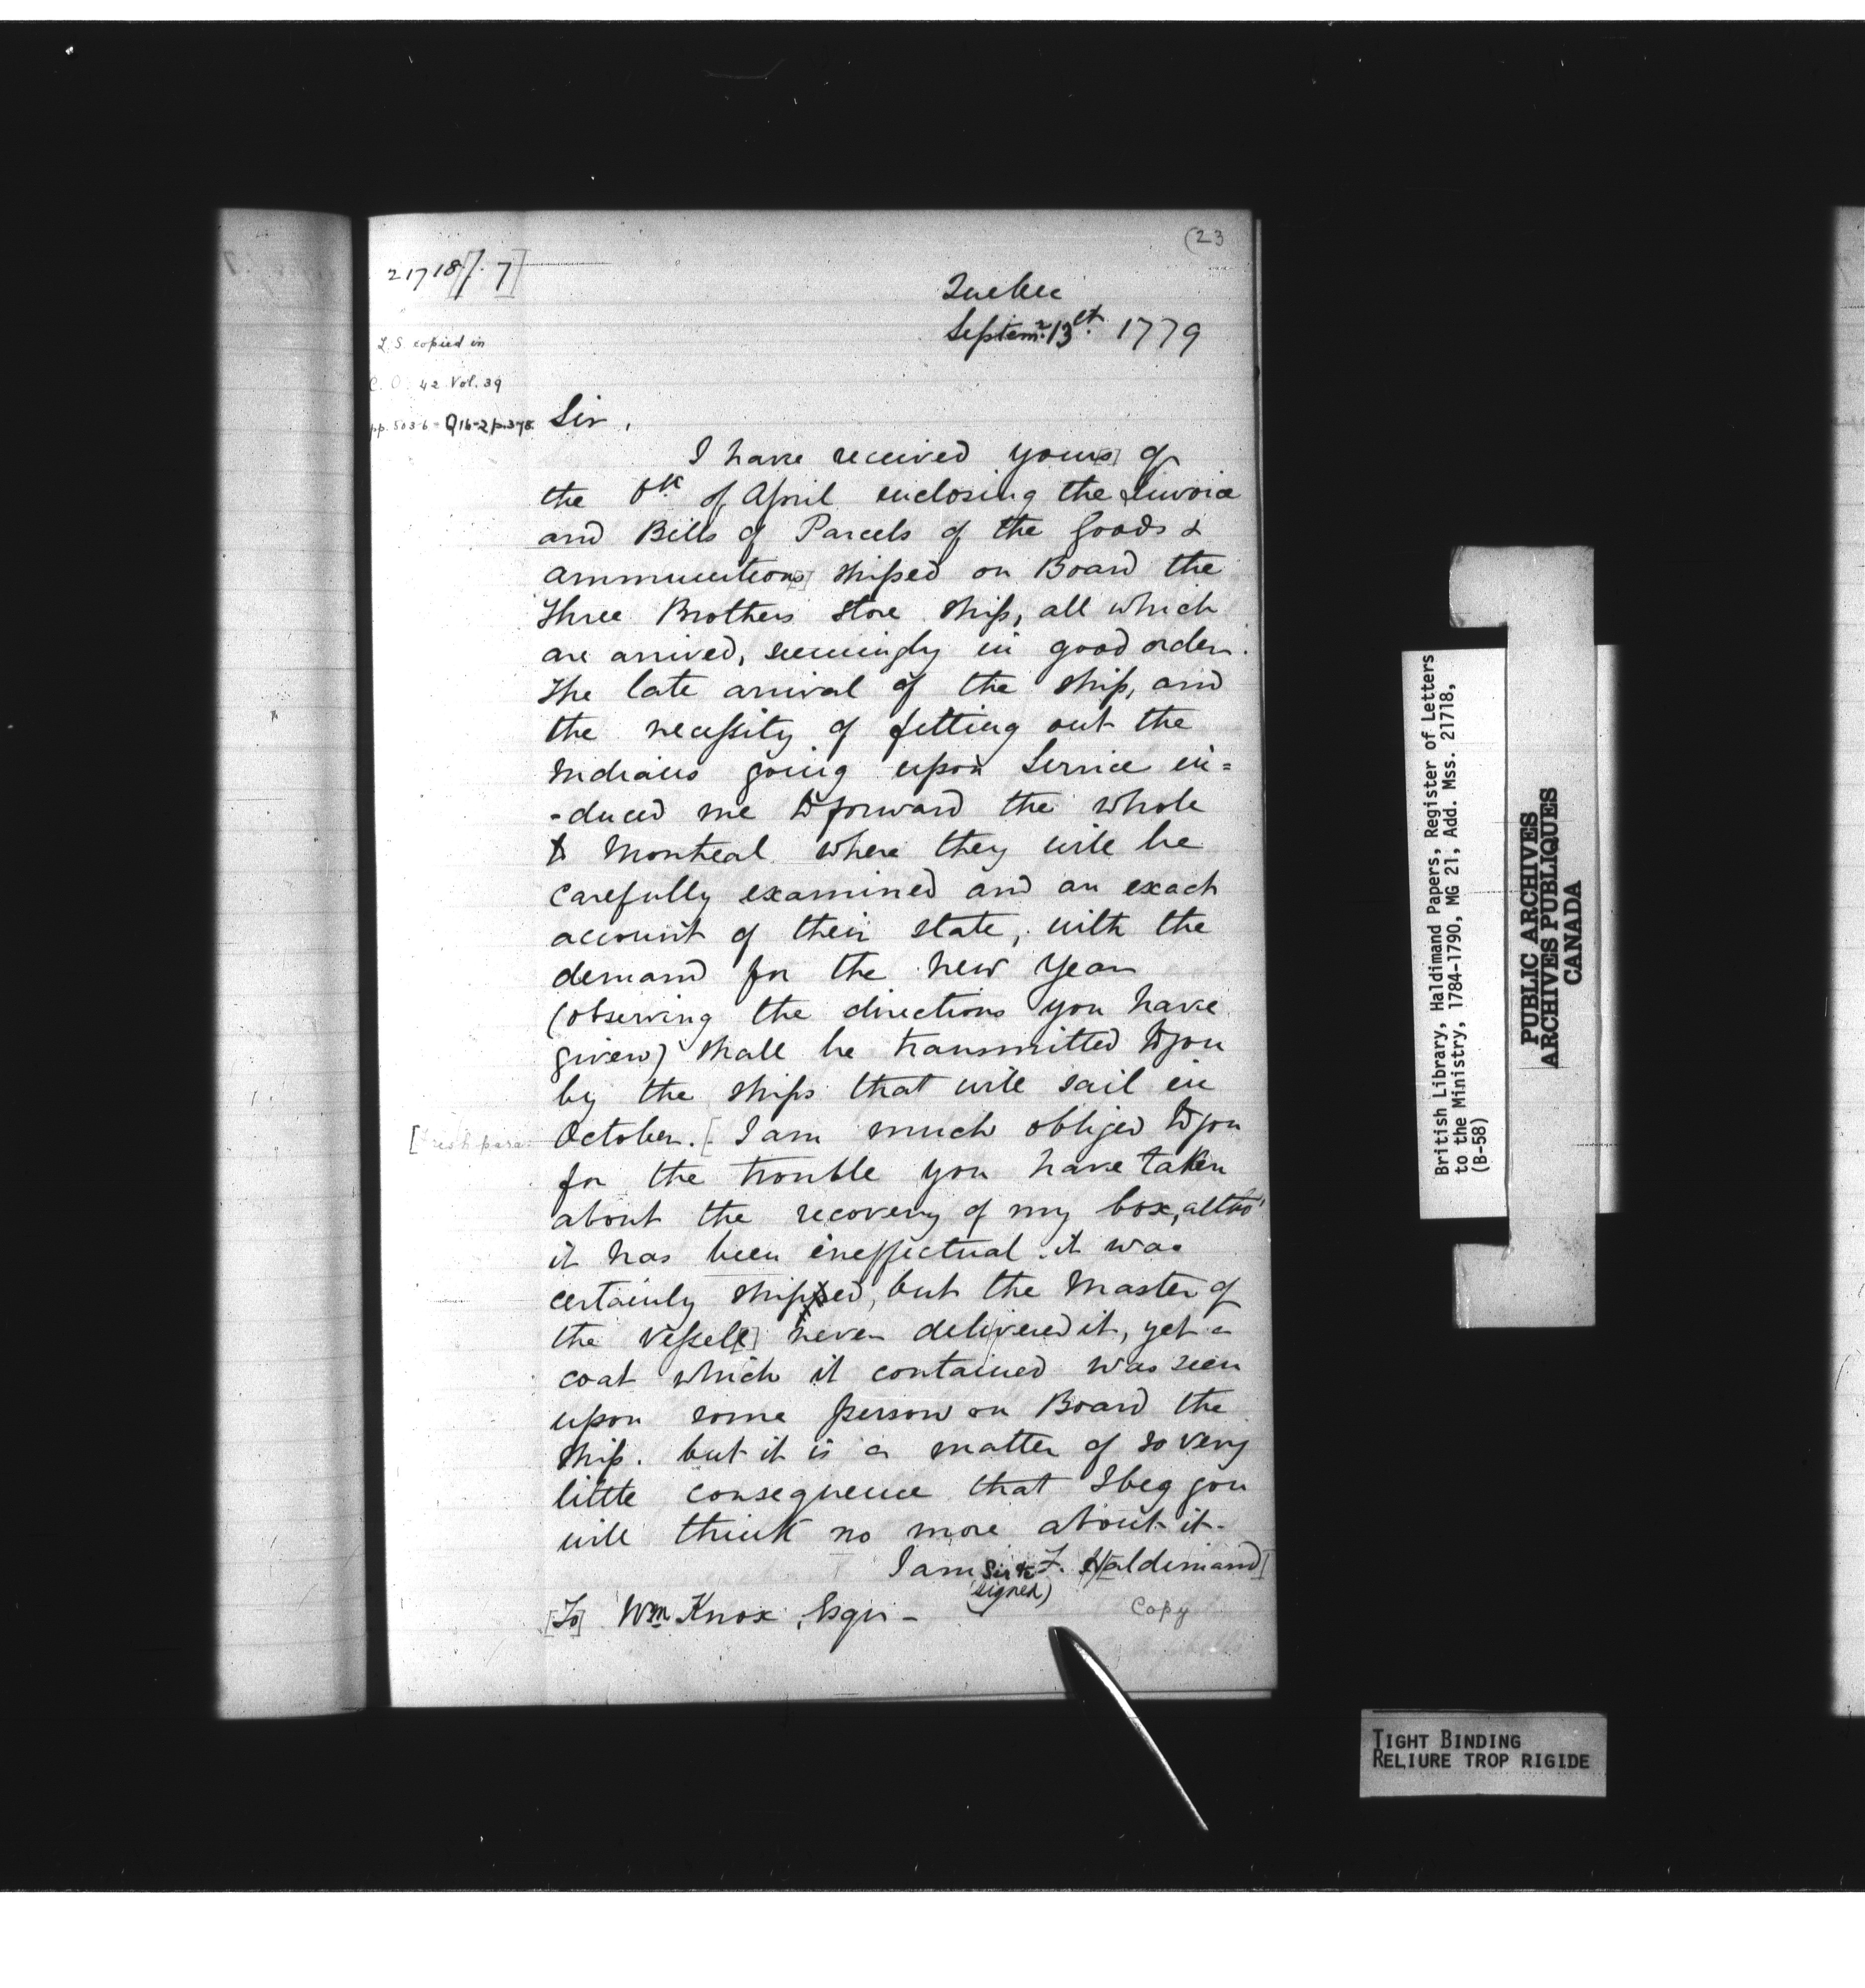 (23
21718 [f. 7]
Quebec
Septemr. 13th. 1779
L. S. copied in
C. O. 42 Vol. 39
pp. 503-6 = Q 16-2 p. 378.
Sir,
I have received yours of
the 6th of April enclosing the Invoice
and Bills of Parcels of the Goods &
ammunitions shiped on Board the
Three Brothers store ship, all which
are arrived, seemingly in good order.
The late arrival of the ship, and
the necessity of fitting out the
Indians going upon Service in=
-duced me to forward the whole
to Montreal where they will be
carefully examined and an exact
account of their state, with the
demand for the new Year
(observing the directions you have
given) shall be transmitted to you
by the ships that will sail in
[fresh para:
October. [ I am much obliged to you
for the trouble you have taken
about the recovery of my box, altho'
it has been ineffectual. it was
certainly shipped, but the Master of
the Vessell never delivered it, yet a
coat which it contained was seen
upon some person on Board the
ship. but it is a matter of so very
little consequence that I beg you
will think no more about it.
I am Sir &c F. Haldimand]
(signed)
[To] Wm Knox, Esqr -
Copy
British Library, Haldimand Papers, Register of Letters
to the Ministry, 1784-1790, MG 21, Add. Mss. 21718,
(B-58)
PUBLIC ARCHIVES
ARCHIVES PUBLIQUES
CANADA
TIGHT BINDING
RELIURE TROP RIGIDE